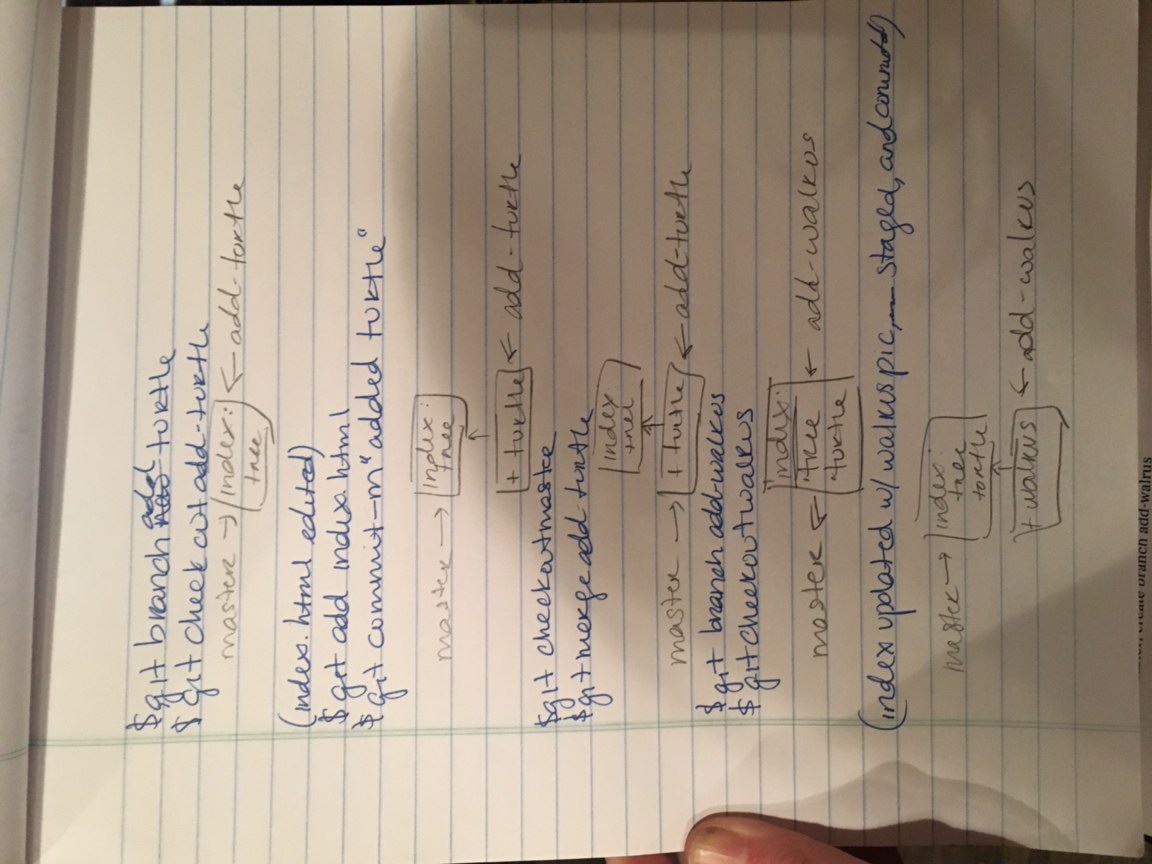 $ git branch add-turtle
$ git checkout add-turtle
master → index: ← add-turtle
tree
(index.html edited)
$ get add index.html
$ git commit -m "added turtle"
index:
master → tree
+ turtle ← add-turtle
$ git checkout maste
$ git merge add-turtle
index
tree
master → + turtle ← add-turtle
$ git branch add-walrus
$ git checkout walrus
index:
master ← · tree ← add-walrus
· turtle
(index updated w/ walrus pic, staged, and committed)
master → index:
tree
turtle
+ walrus ← add-walrus
create branch add-walrus